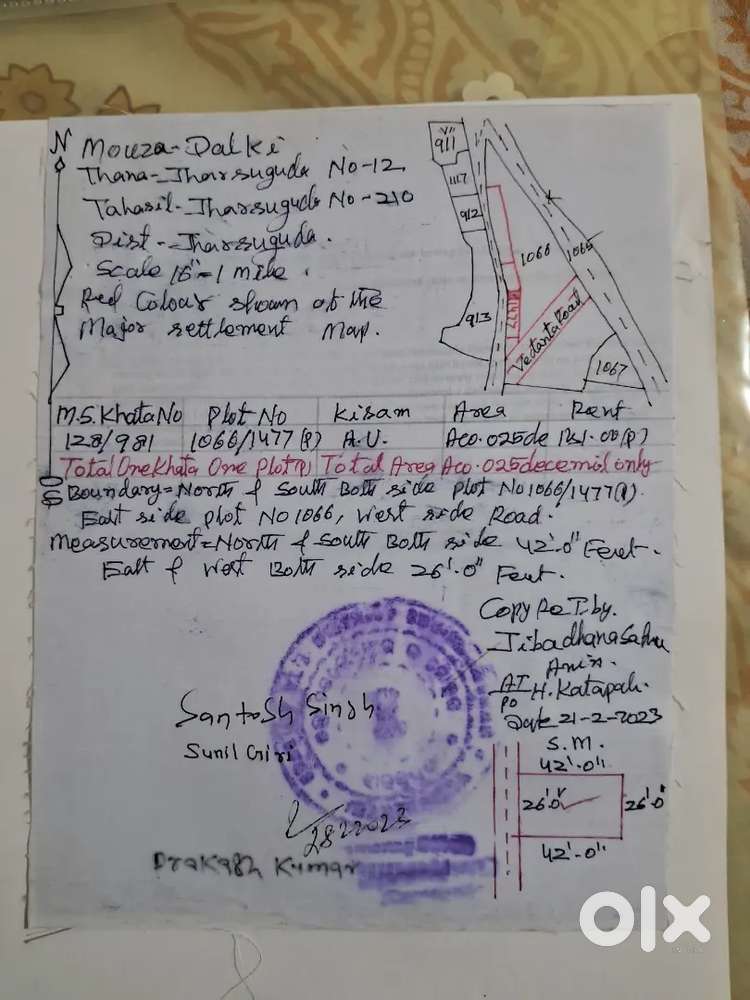 N
Mouza-Dalki
Thana-Jharsuguda No-12
Tahasil-Jharsuguda No-210
Dist-Jharsuguda.
Scale 16"=1 mile.
Red Colour shown of the
Major settlement Map.
911
1117
912
913
1066
1065
1477
Vedanta Road
1067
M.S. Khata No Plot No Kisam Area Rent
128/981 1066/1477(P) A.U. Aco.025de Rs1.00(P)
Total One Khata One Plot(P) Total Area Aco.025decemil only
S
Boundary=North & South Both side Plot No 1066/1477(P).
East side plot No 1066, West side Road.
Measurement=North & South Both side 42'.0" Feet.
East & West Both side 26'.0" Feet.
Copy Pe T. by.
Jibadhana Sahu
Amin.
AT
PO H. Katapali.
Date 21-2-2023
Santosh Singh
Sunil Giri
28 2 2023
Prakash Kumar
S.M.
42'.0"
26'.0" 26'.0"
42'.0"
olx